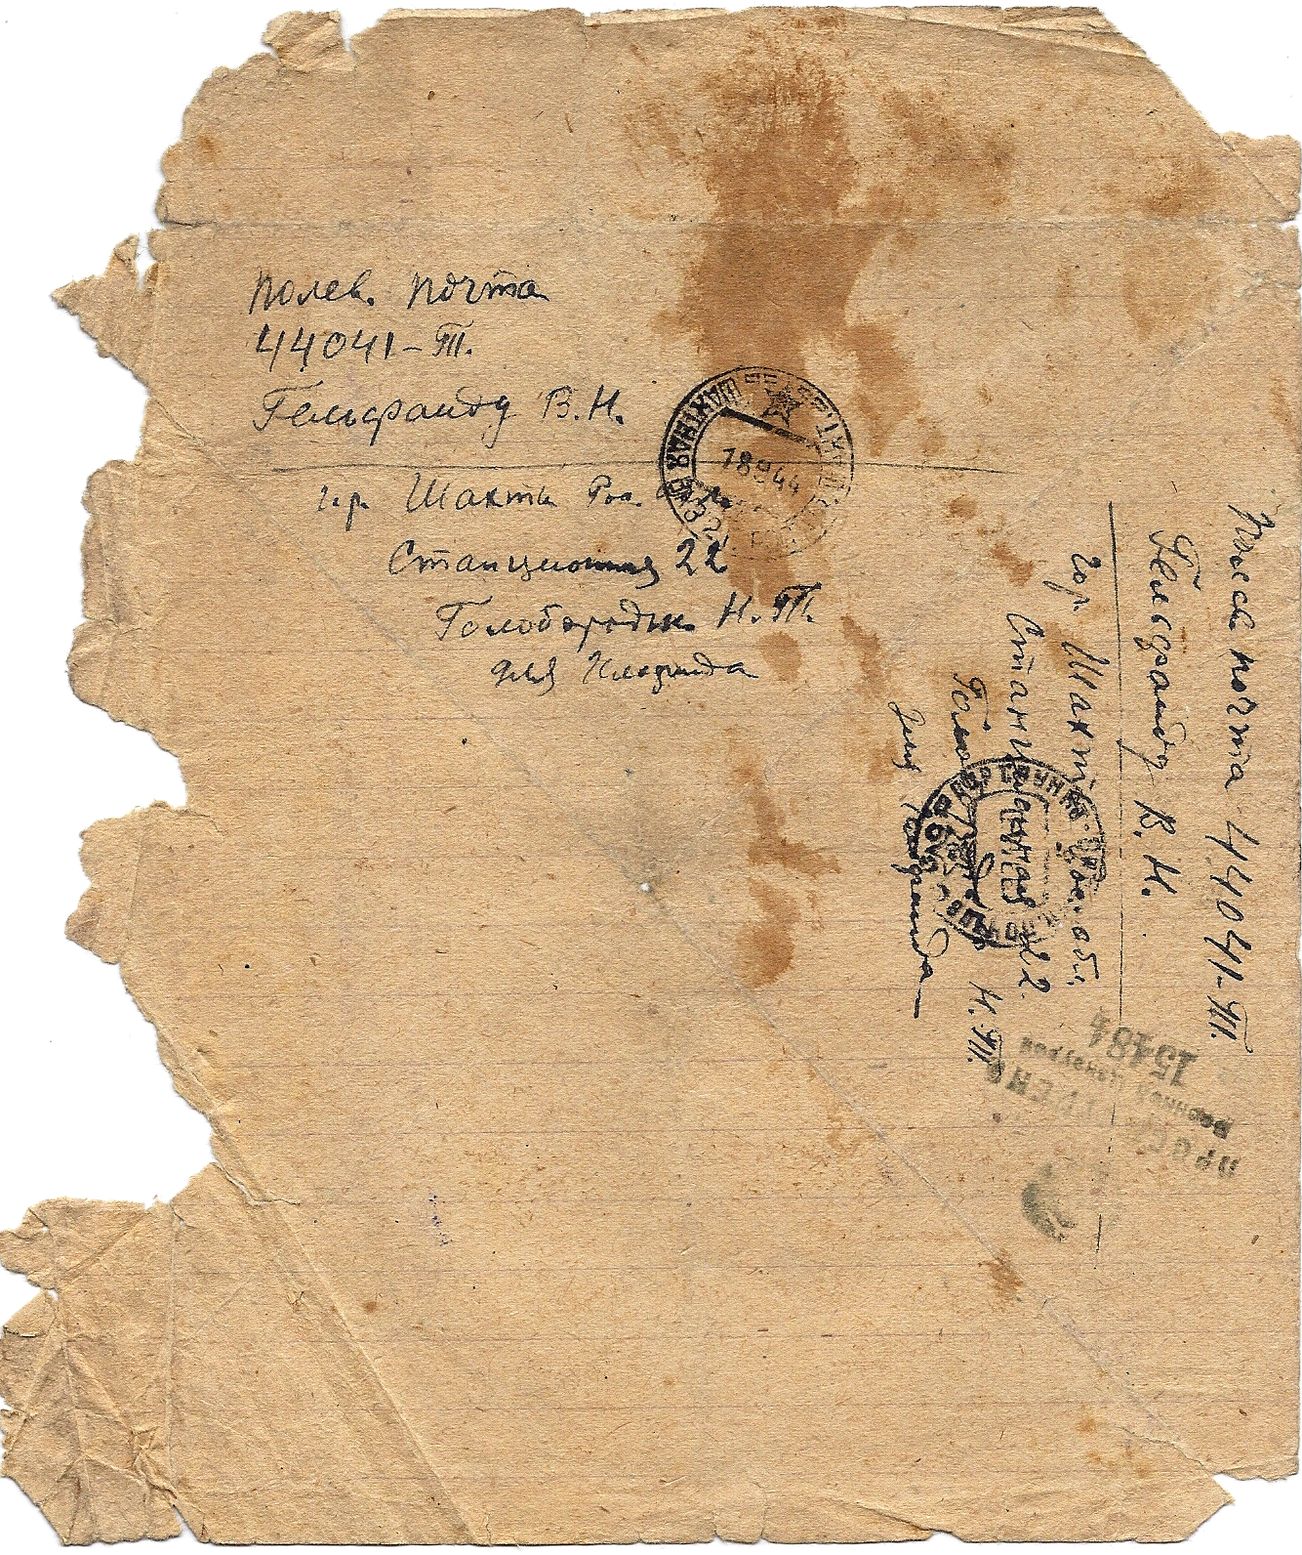 полев. почта
44041-т.
Гельфанду В. Н.
гр. Шахты Рос.
Станционная 22
Голобородько Н. Т.
для Гельфанда
ШАХТНАЯ
18 9 44
Полев. почта 44041-т.
Гельфанду В. Н.
гор. Шахты Рос. обл.
Станционная 22.
Н. Т.
для Гельфанда
ПРОСМОТРЕНО
Военной Цензурой
15484